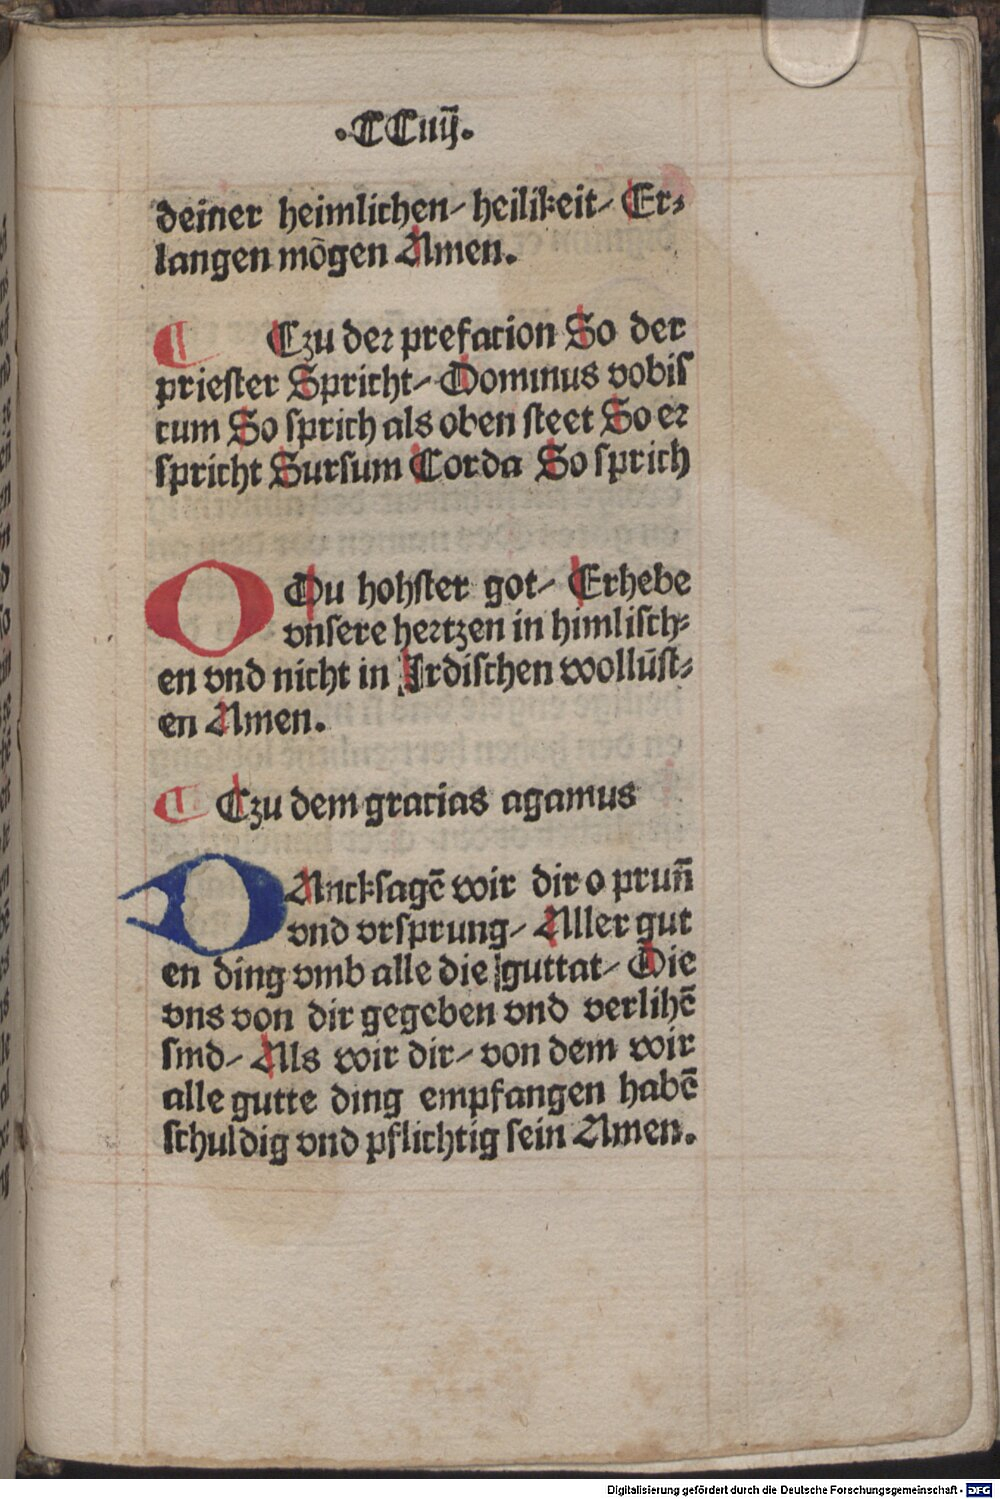 ·CCvij·
deiner heimlichen/ heilikeit/ Er⸗
langen mõgen Amen.
Czu der prefacion So der
priester Spricht/ Dominus vobiſ
cum So ſprich als oben ſteet So er
ſpricht Surſum Corda So ſprich
O Du hohſter got/ Erhebe
vnſere hertzen in himliſch⸗
en vnd nicht in Irdiſchen wollūſt⸗
en Amen.
Czu dem gracias agamus
DAnckſagē wir dir o prun̄
vnd vrſprung/ Aller gut
en ding vmb alle die guttat/ Die
vns von dir gegeben vnd verlihē
ſind/ Als wir dir/ von dem wir
alle gutte ding empfangen habē
ſchuldig vnd pflichtig ſein Amen.
Digitalisierung gefördert durch die Deutsche Forschungsgemeinschaft - DFG